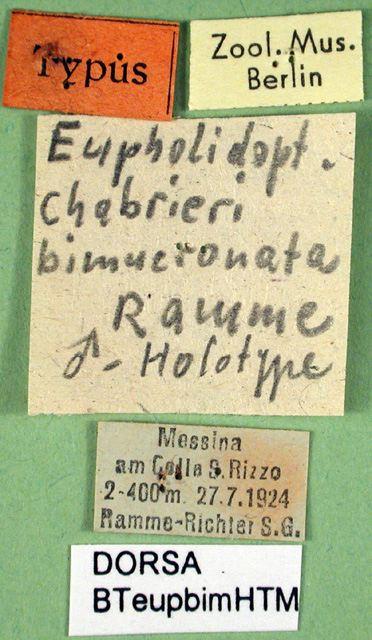 Typus
Zool. Mus.
Berlin
Eupholidopt.
Chabrieri
bimucronata
Ramme
♂ - Holotype
Messina
am Colle S. Rizzo
2-400 m. 27.7.1924
Ramme-Richter S.G.
DORSA
BTeupbimHTM